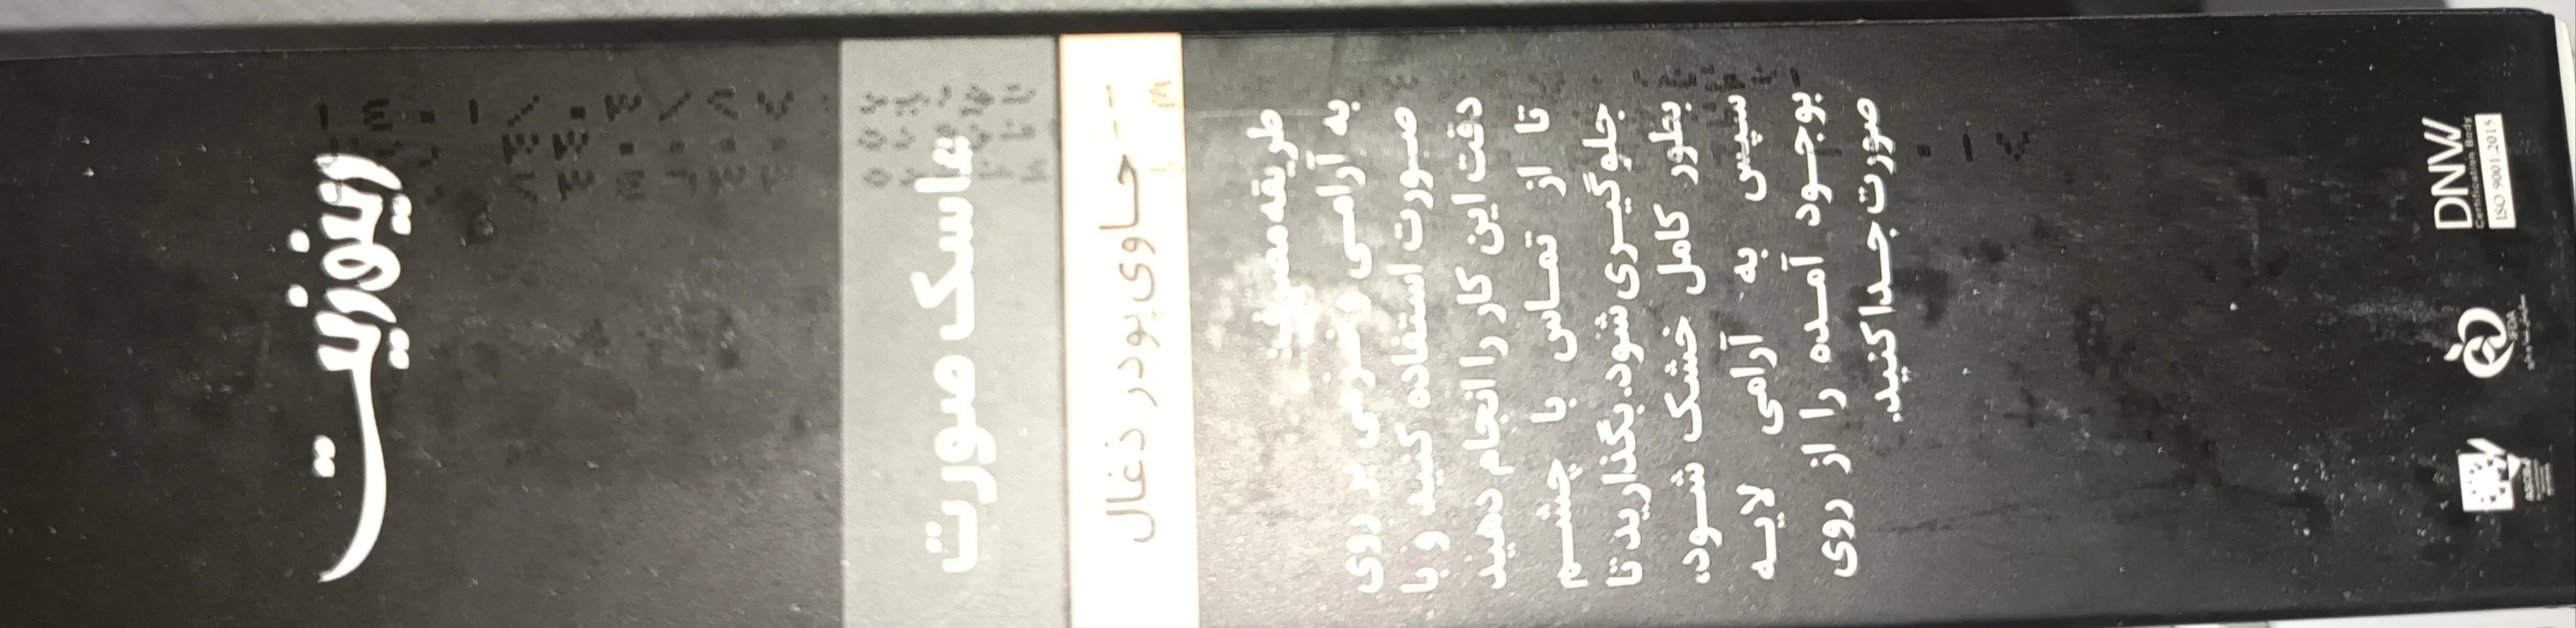 رینوزیت
ماسک صورت
حاوی پودر ذغال
طریقه مصرف:
به آرامی و نرمی بر روی
صورت استفاده کنید و با
دقت این کار را انجام دهید
تا از تماس با چشم
جلوگیری شود. بگذارید تا
بطور کامل خشک شود،
سپس به آرامی لایه
بوجود آمده را از روی
صورت جدا کنید.
DNW
Certification Body
ISO 9001:2015
IFDA